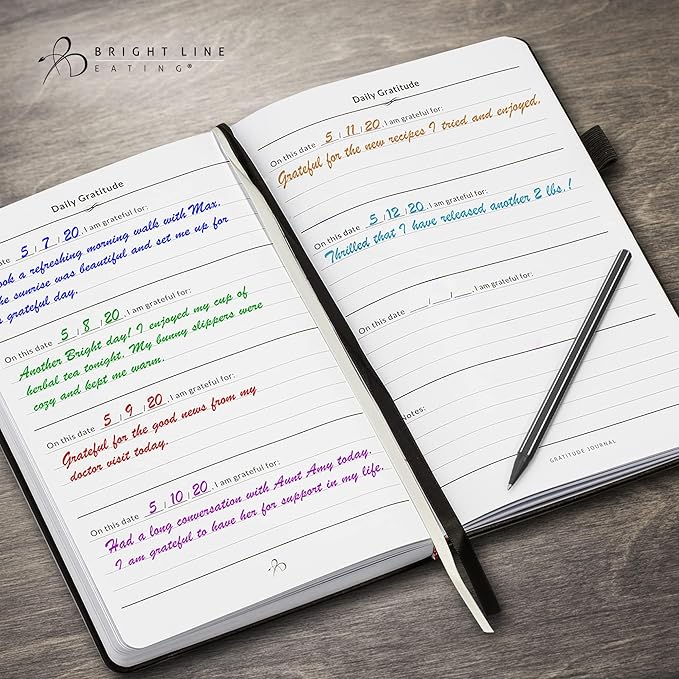 BRIGHT LINE
EATING®
Daily Gratitude
5 / 7 / 20 . I am grateful for:
a refreshing morning walk with Max.
sunrise was beautiful and set me up for
grateful day.
On this date 5 / 8 / 20 . I am grateful for:
Another Bright day! I enjoyed my cup of
herbal tea tonight. My bunny slippers were
cozy and kept me warm.
On this date 5 / 9 / 20 . I am grateful for:
Grateful for the good news from my
doctor visit today.
On this date 5 / 10 / 20 . I am grateful for:
Had a long conversation with Aunt Amy today.
I am grateful to have her for support in my life.
Daily Gratitude
On this date 5 / 11 / 20 . I am grateful for:
Grateful for the new recipes I tried and enjoyed.
On this date 5 / 12 / 20 . I am grateful for:
Thrilled that I have released another 2 lbs.!
On this date ___/___/___. I am grateful for:
Notes:
GRATITUDE JOURNAL